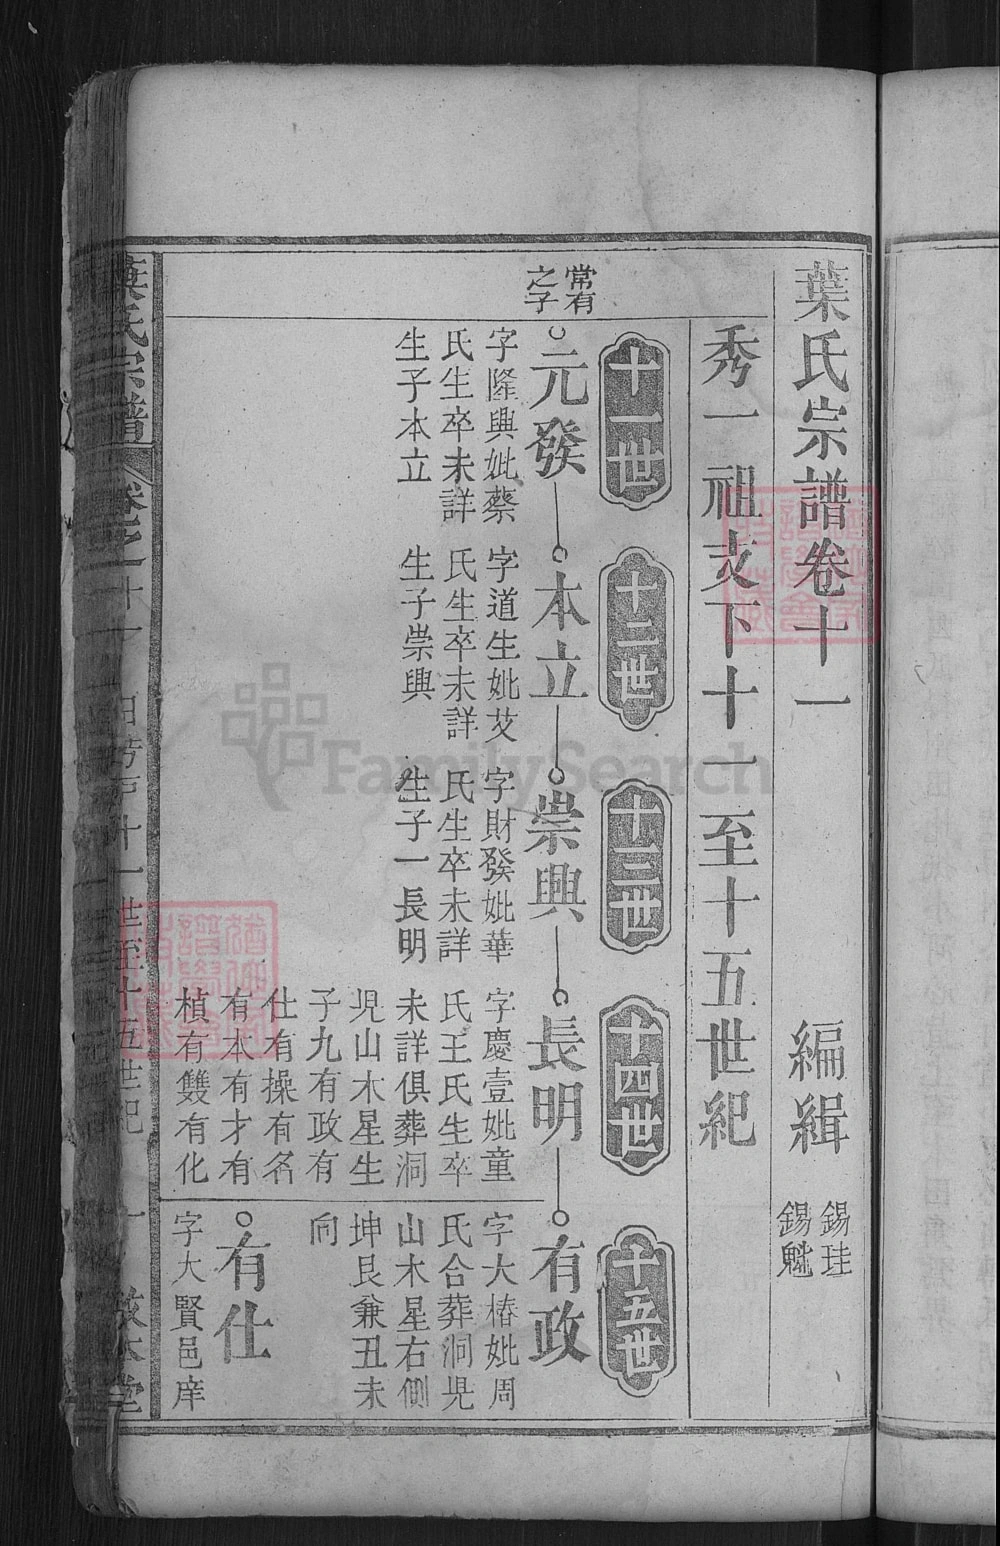 葉氏宗譜卷十一
編緝
錫珪
錫魁
秀一祖支下十一至十五世紀
十一世
十二世
十三世
十四世
十五世
常有
之子
元發
字隆興妣蔡
氏生卒未詳
生子本立
本立
字道生妣艾
氏生卒未詳
生子崇興
崇興
字財發妣華
氏生卒未詳
生子一長明
長明
字慶壹妣童
氏王氏生卒
未詳俱葬洞
𡶶山木星生
子九有政有
仕有操有名
有本有才有
楨有雙有化
有政
字大椿妣周
氏合葬洞𡶶
山木星右側
坤艮兼丑未
向
有仕
字大賢邑庠
葉氏宗譜
卷之二十一
十一世至十五世紀
一
敦本堂
FamilySearch